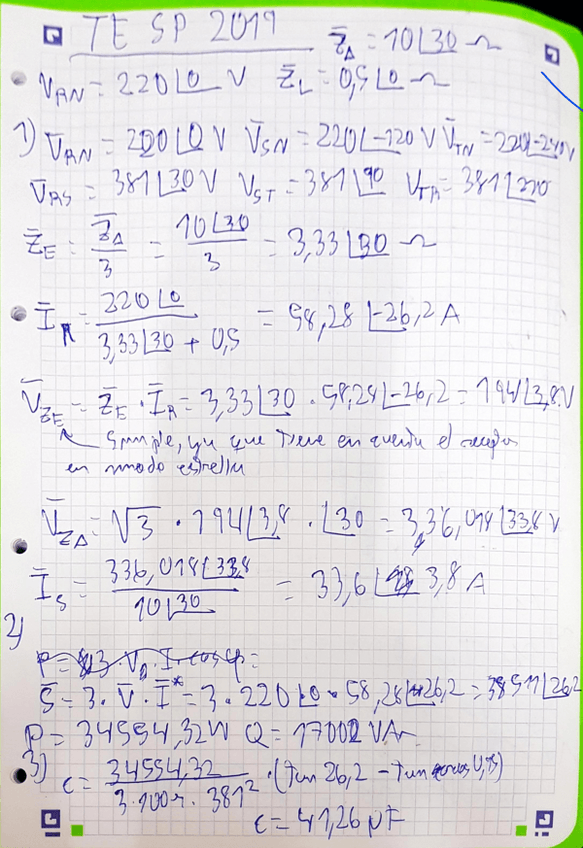 TE SP 2019
Z̄Δ = 10∠30 Ω
V̄RN = 220∠0 V Z̄L = 0,5∠0 Ω
1) V̄RN = 220∠0 V V̄SN = 220∠-120 V V̄TN = 220∠-240 V
V̄RS = 381∠30 V VST = 381∠90 VTR = 381∠210
Z̄E = Z̄Δ/3 = 10∠30/3 = 3,33∠30 Ω
ĪR = 220∠0/(3,33∠30 + 0,5) = 58,28∠-26,2 A
V̄ZE = Z̄E · ĪR = 3,33∠30 · 58,28∠-26,2 = 194∠3,8 V
Simple, ya que tiene en cuenta el
en modo estrella
V̄ZΔ = √3 · 194∠3,8 · ∠30 = 336,018∠33,8 V
ĪS = 336,018∠33,8/10∠30 = 33,6∠3,8 A
2)
S̄ = 3 · V̄ · Ī* = 3 · 220∠0 · 58,28∠26,2 = 38511∠26,2
P = 34554,32 W Q = 17002 VAr
3) C = 34554,32/(3 · 100π · 381²) · (tan 26,2 - tan
C = 41,26 μF